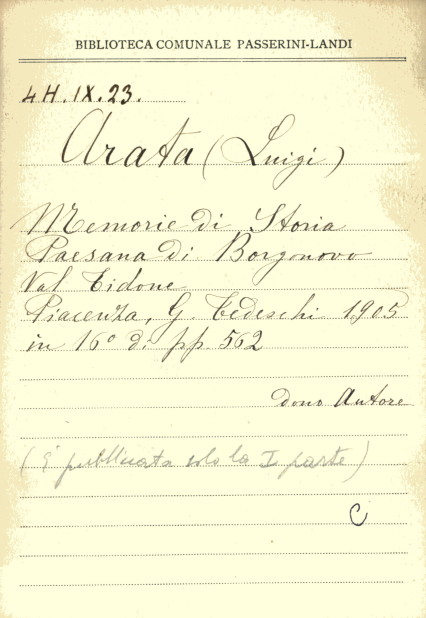 BIBLIOTECA COMUNALE PASSERINI-LANDI
4H.IX.23.
Arata (Luigi)
Memorie di Storia
Paesana di Borgonovo
Val Tidone
Piacenza, G. Tedeschi 1905
in 16° di pp 562
dono Autore
(è pubblicata solo la I parte)
C